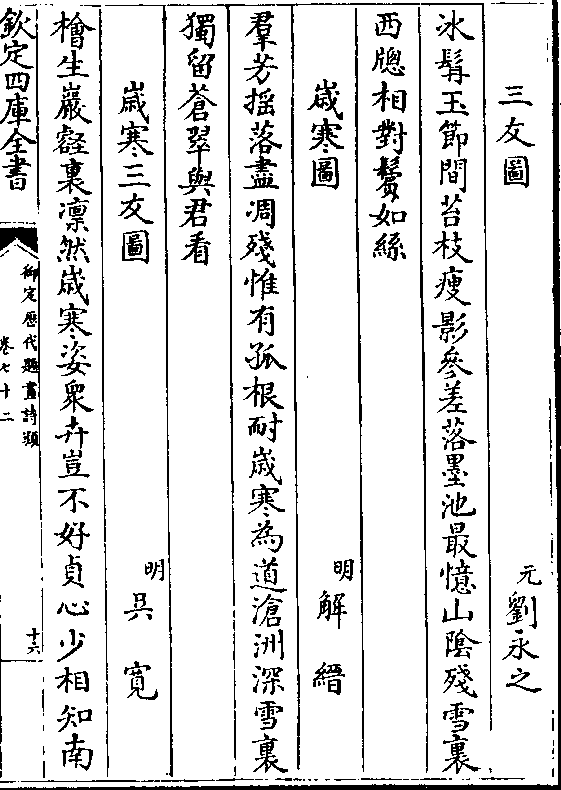 三友圖 元 劉永之
冰髯玉節間苔枝瘦影參差落墨池最憶山隂殘雪裏
西牕相對鬢如絲
歲寒圖 明 解縉
羣芳揺落盡凋殘惟有孤根耐歲寒為道滄洲深雪裏
獨留蒼翠與君看
歲寒三友圖 明 吳寛
檜生巖壑裏凛然歲寒姿衆卉豈不好貞心少相知南
欽定四庫全書 御定歴代題畫詩類 卷七十二 十六